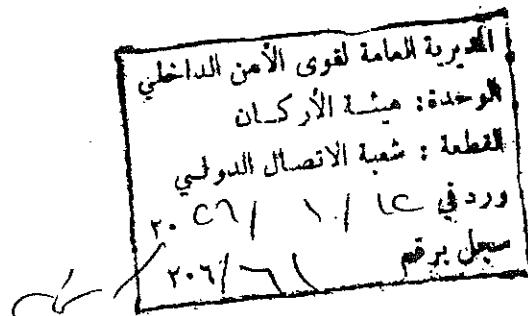 المديرية العامة لقوى الأمن الداخلي
الوحدة: هيئة الأركان
القطعة : شعبة الاتصال الدولي
ورد في ١٢ / ١ / ٢٠٢٦
سجل برقم ٢٠٦/٦١